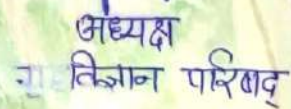 अध्यक्ष
गृह विज्ञान परिषद्